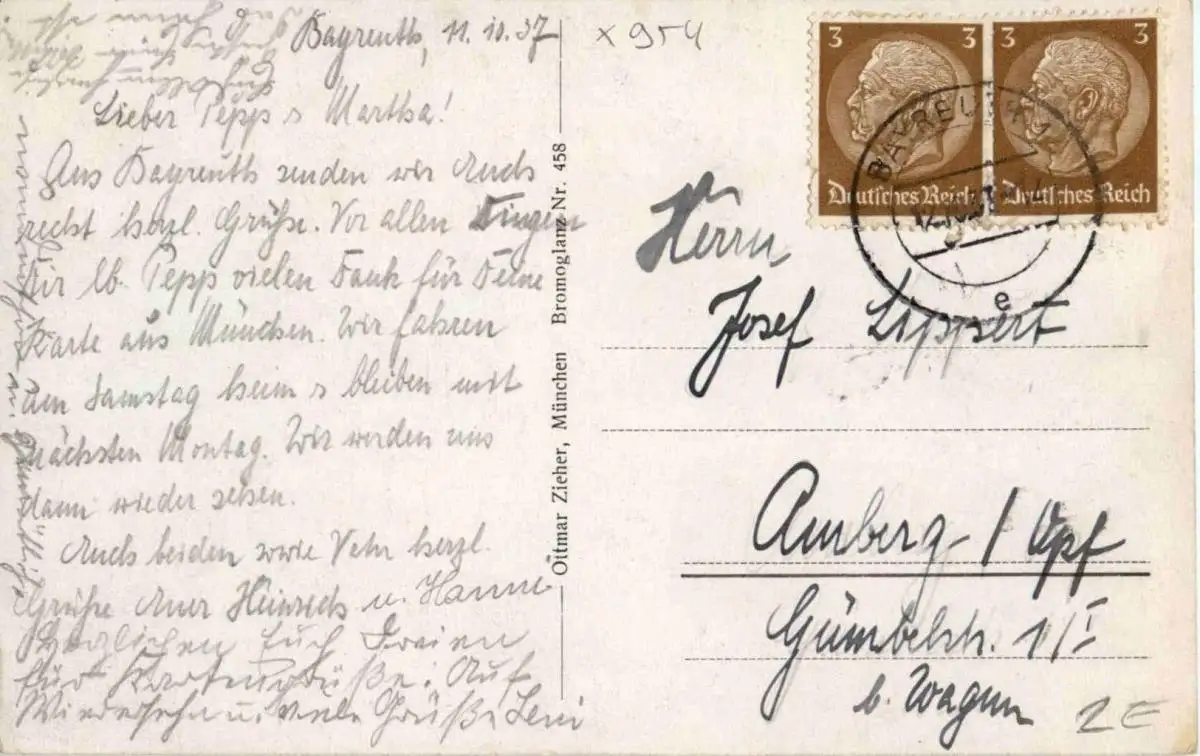 Bayreuth, 11.10.37
Lieber Pepp s Martha!
Aus Bayreuth senden wir Euch
recht herzl. Grüße. Vor allen Dingen
Dir lb. Pepp vielen Dank für Deine
Karte aus München. Wir fahren
am Samstag heim s bleiben mit
nächsten Montag. Wir werden uns
dann wieder sehen.
Euch beiden sowie Vater herzl.
Grüße Euer Heinrich u. Hanne
Herzlichen Euch Dreien
für Kartengrüße. Auf
Wiedersehn u. viele Grüße Leni
Ottmar Zieher, München Bromoglanz Nr. 458
x 954
3 3
3 3
Deutsches Reich
Deutsches Reich
BAYREUTH
e
Herrn
Josef Lippert
Amberg / Opf
Gümbelstr. 1/I
b. Wagner
2E